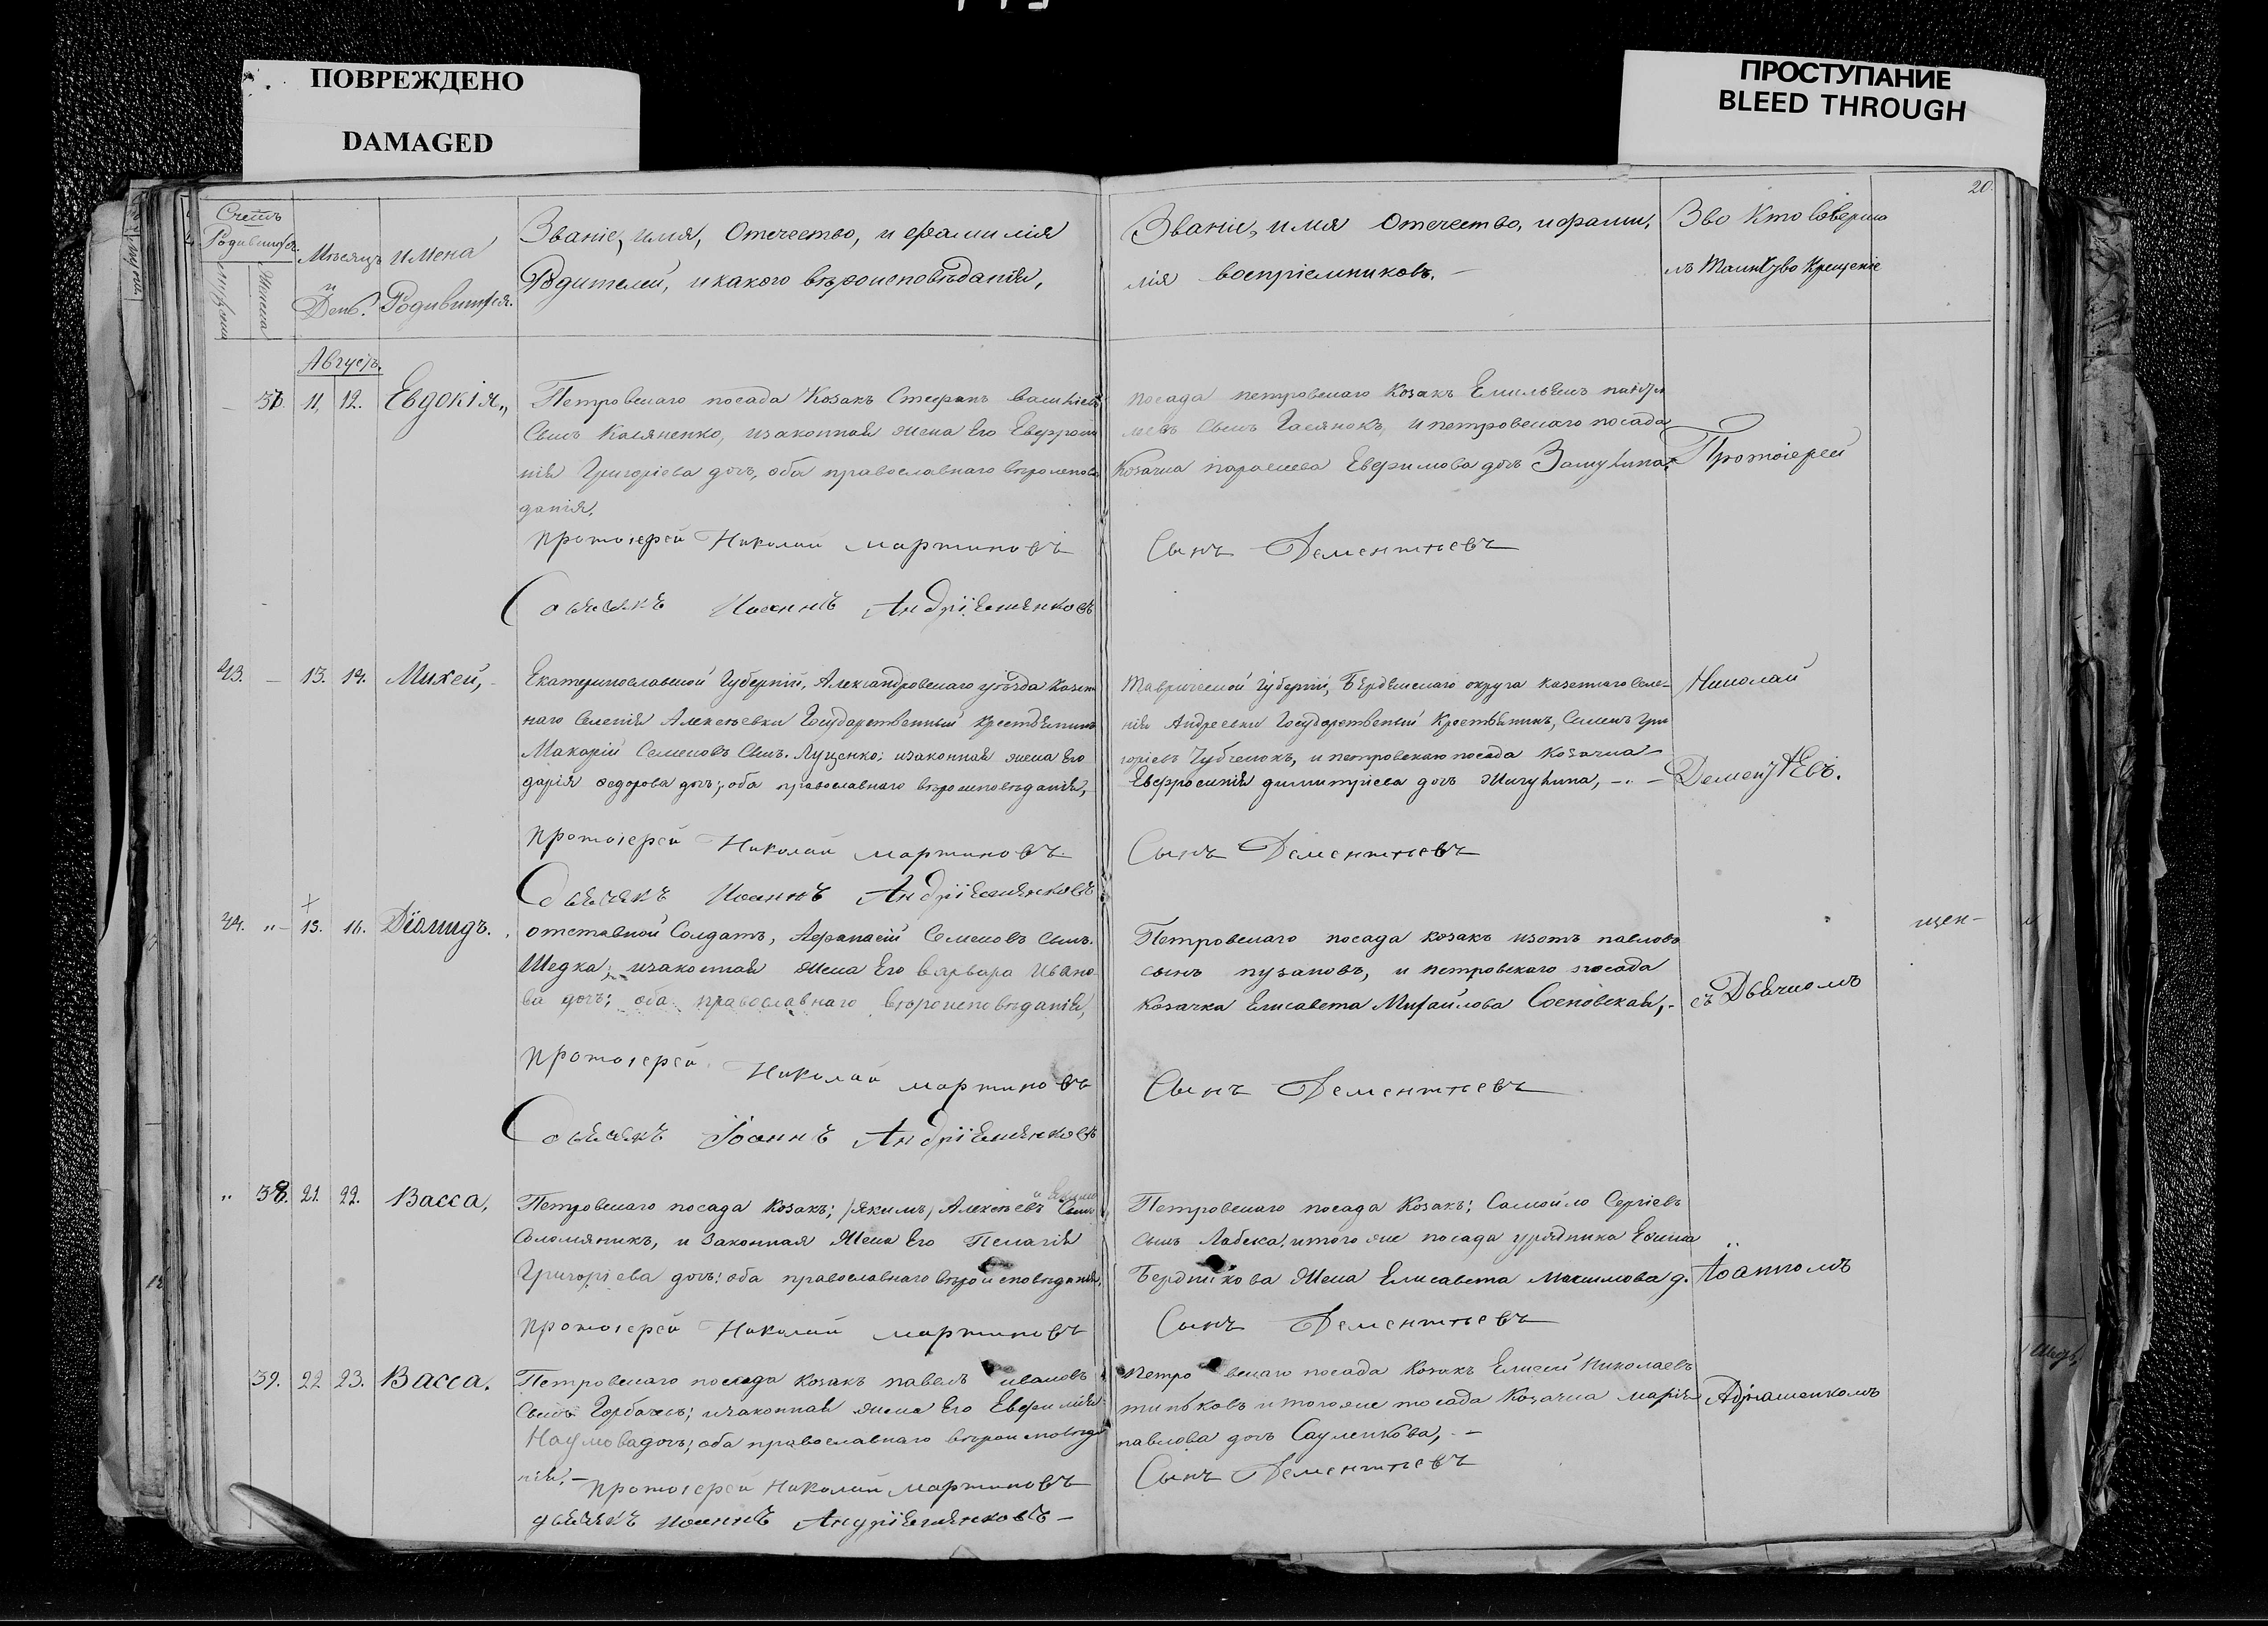 ПОВРЕЖДЕНО
DAMAGED
ПРОСТУПАНИЕ
BLEED THROUGH
20.
Счетъ
Родившихся.
Мѣсяцъ
и
День.
имена
Родившихся.
Званіе, имя, Отечество, и фамилія
Родителей, и какого вѣроисповѣданія,
Званіе, имя Отечество, и фами,
лія воспріемниковъ.
Кто Соверши
лъ Таинство Крещеніе
Августъ.
11, 12. Евдокія,,
Петровскаго посада Козакъ Стефанъ
Сынъ Касяненко, изаконная жена Его Евфроси
нія Григоріева дочь, оба православнаго вѣроисповѣ
данія.
протоіерей Николай мартиновъ
Іоаннъ Андріяшенковъ
посада петровскаго Козакъ Емельянъ
сынъ и петровскаго посада
Козачка параскева Евфимова дочь
Сынъ Дементьевъ
Протоіерей
43. — 13. 14. Михей,
Екатеринославской Губерніи, Александровскаго уѣзда Казен
наго Селенія Алексѣевки Государственный Крестьянинъ
Макарій Семеновъ Сынъ Луценко; изаконная жена Его
дарія Федорова дочь; оба православнаго вѣроисповѣданія,
протоіерей Николай мартиновъ
Іоаннъ Андріяшенковъ
Таврической Губерніи, Бердянскаго округа казеннаго Селе-
нія Андреевки Государственный Крестьянинъ, Семенъ Гри
горіевъ Чубченокъ, и петровскаго посада Козачка
Евфросинія димитріева дочь
Сынъ Дементьевъ
Николай
Дементьевъ.
44. ,, — 13. 16. Діомидъ.
отставной Солдатъ, Афанасій Семеновъ сынъ
Шедка; изаконная жена Его варвара Ивано
ва дочь; оба православнаго вѣроисповѣданія,
протоіерей Николай мартиновъ
Іоаннъ Андріяшенковъ
Петровскаго посада козакъ изотъ павловъ
сынъ пузановъ, и петровскаго посада
козачка Елисавета Михайлова Сосновская,-
Сынъ Дементьевъ
съ Дьячкомъ
щен-
,, 38. 21. 22. Васса,
Петровскаго посада Козакъ; /якимъ/ Алексѣевъ Сынъ
Соломяникъ, и Законная Жена Его Пелагія
Григоріева дочь: оба православнаго вѣроисповѣданія,
протоіерей Николай мартиновъ
Петровскаго посада Козакъ; Самойло Сергіевъ
сынъ Лабека, итого же посада урядника
Бердникова Жена Елисавета Максимова д.
Сынъ Дементьевъ
Іоанномъ
39. 22 23. Васса.
Петровскаго посада Козакъ павелъ ивановъ
Сынъ Горбачевъ; изаконная жена Его Евфимія
Наумова дочь; оба православнаго вѣроисповѣда
нія,—
протоіерей Николай мартиновъ
дьячекъ Іоаннъ Андріяшенковъ —
Петровскаго посада Козакъ Елисей Николаевъ
итогоже посада Козачка марія
павлова дочь Сауленкова,—
Сынъ Дементьевъ
Адріашенкомъ